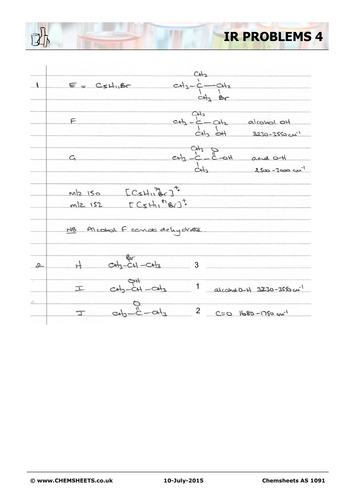 IR PROBLEMS 4
CH3
1 E = C5H11Br CH3-C-CH2
CH3 Br
CH3
F CH3-C-CH2 alcohol OH
CH3 OH 3230-3550 cm-1
CH3 O
G CH3-C-C-OH acid O-H
CH3 2500-3000 cm-1
m/z 150 [C5H11 79Br]+
m/z 152 [C5H11 81Br]+
NB Alcohol F cannot dehydrate
Br
2 H CH3-CH-CH3 3
OH
I CH3-CH-CH3 1 alcohol O-H 3230-3550 cm-1
O
J CH3-C-CH3 2 C=O 1680-1750 cm-1
© www.CHEMSHEETS.co.uk 10-July-2015 Chemsheets AS 1091